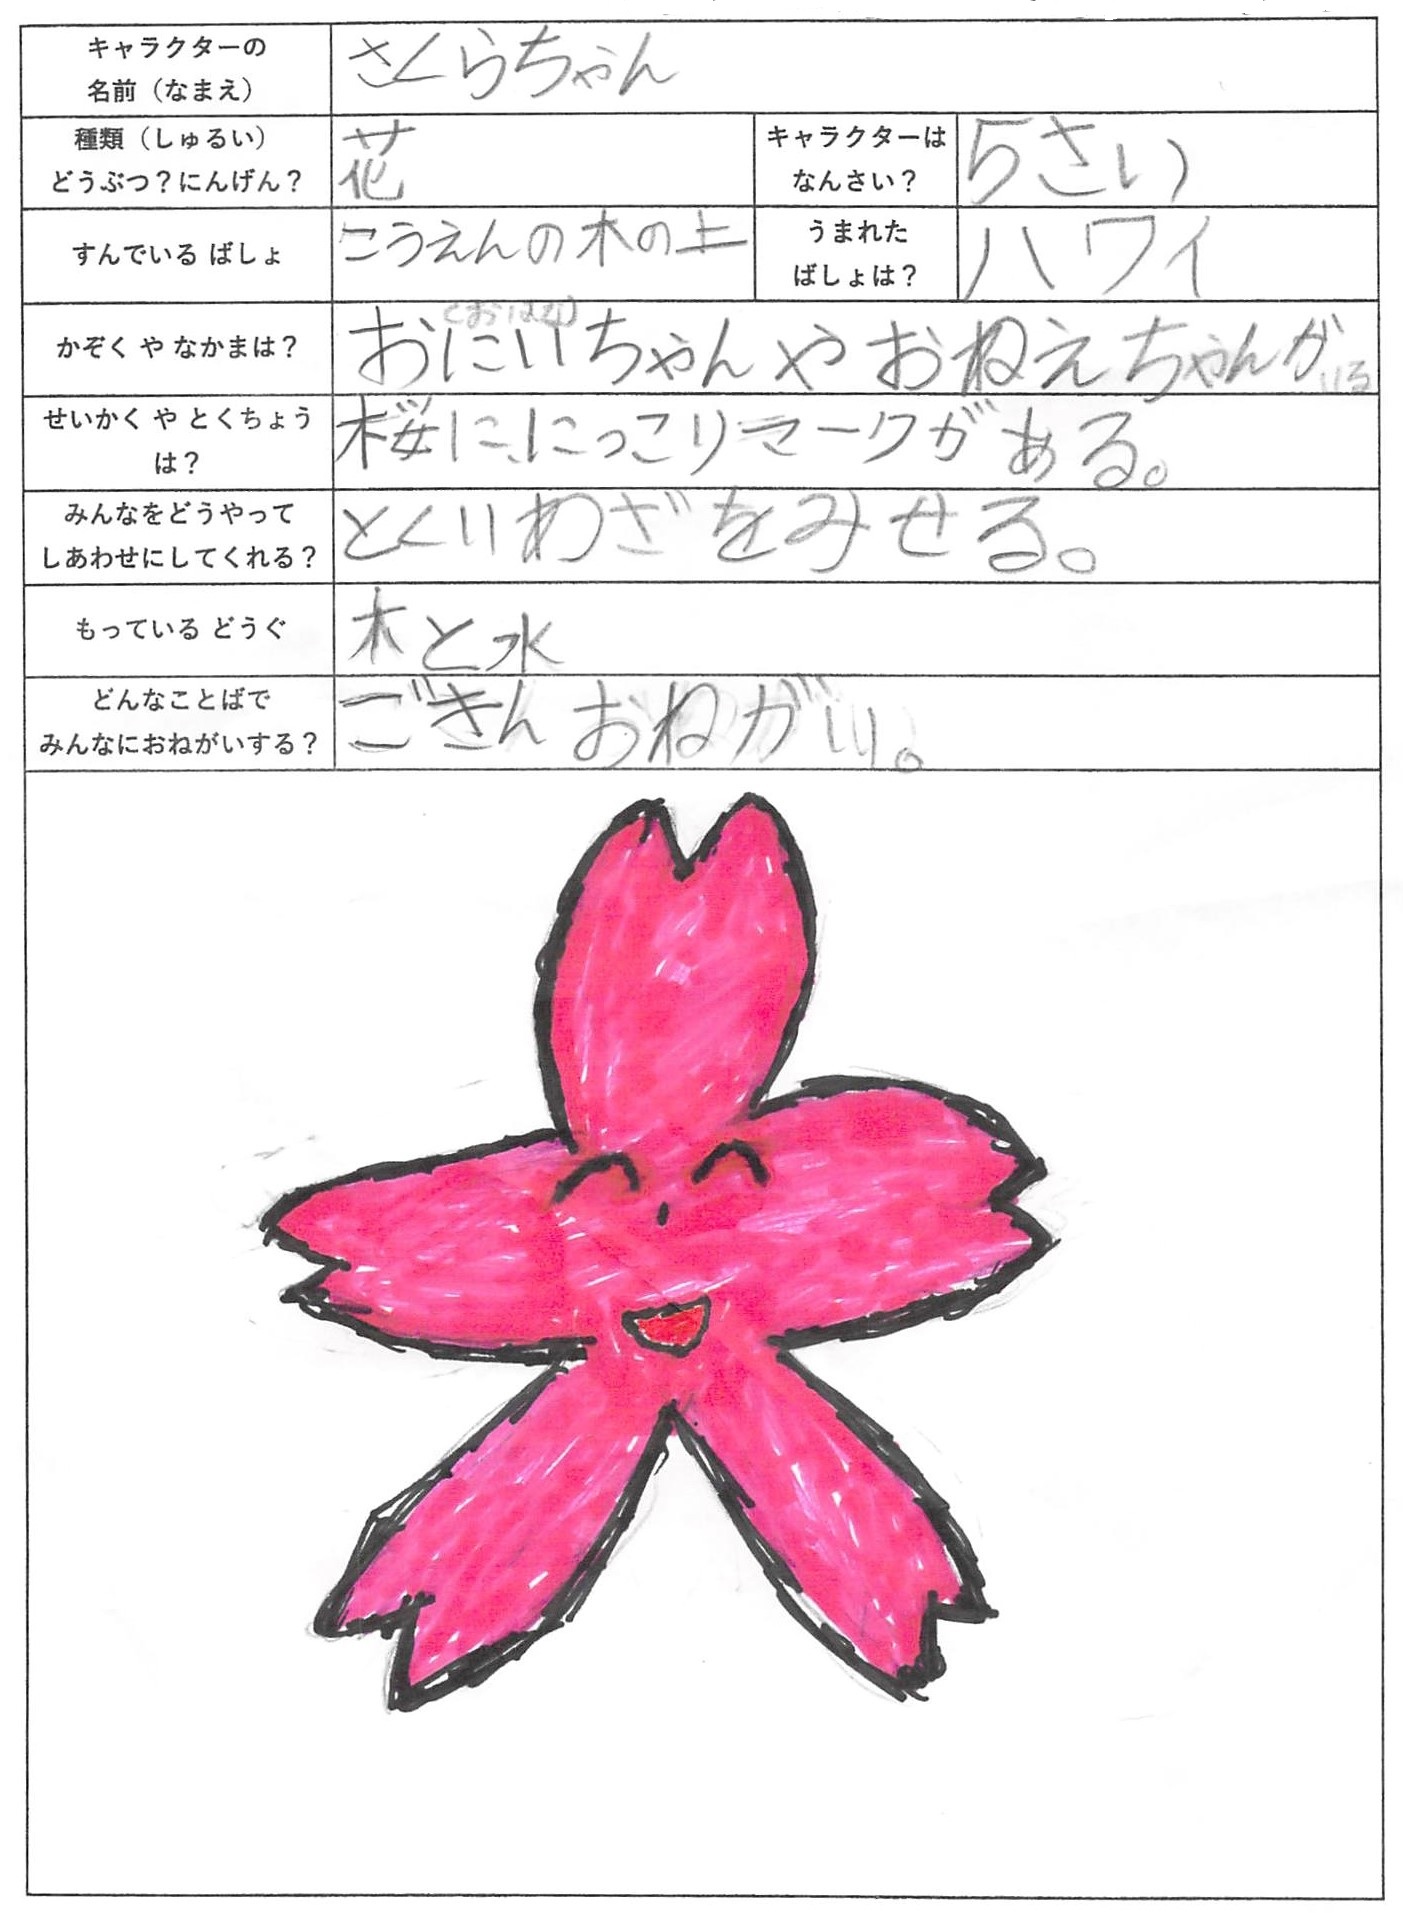 キャラクターの
名前（なまえ）
さくらちゃん
種類（しゅるい）
どうぶつ？にんげん？
花
キャラクターは
なんさい？
5さい
すんでいる ばしょ
こうえんの木の上
うまれた
ばしょは？
ハワイ
かぞく や なかまは？
おにいちゃんやおねえちゃんがいる
せいかく や とくちょう
は？
桜に、にっこりマークがある。
みんなをどうやって
しあわせにしてくれる？
とくいわざをみせる。
もっている どうぐ
木と水
どんなことばで
みんなにおねがいする？
ごきんおねがい。